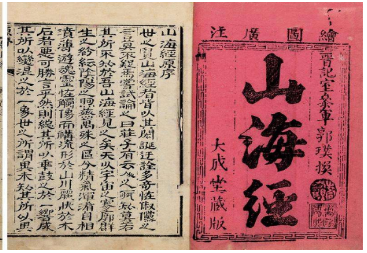 繪圖廣注
晉記室參軍郭璞撰
山海經
大成堂藏版
山海經原序
世之覽山海經者皆以其閎誕迂誇多奇怪俶儻之
言莫不疑焉嘗試論之曰莊子有云人之所知莫若
其所不知吾於山海經見之矣夫以宇宙之寥廓群
生之紛紜陰陽之煦蒸萬殊之區分精氣渾淆自相
濆薄遊魂靈怪觸像而構流形於山川麗狀於木
石者惡可勝言乎然則總其所以乖鼓之於一響成
其所以變混之於一象世之所謂異未知其所以異